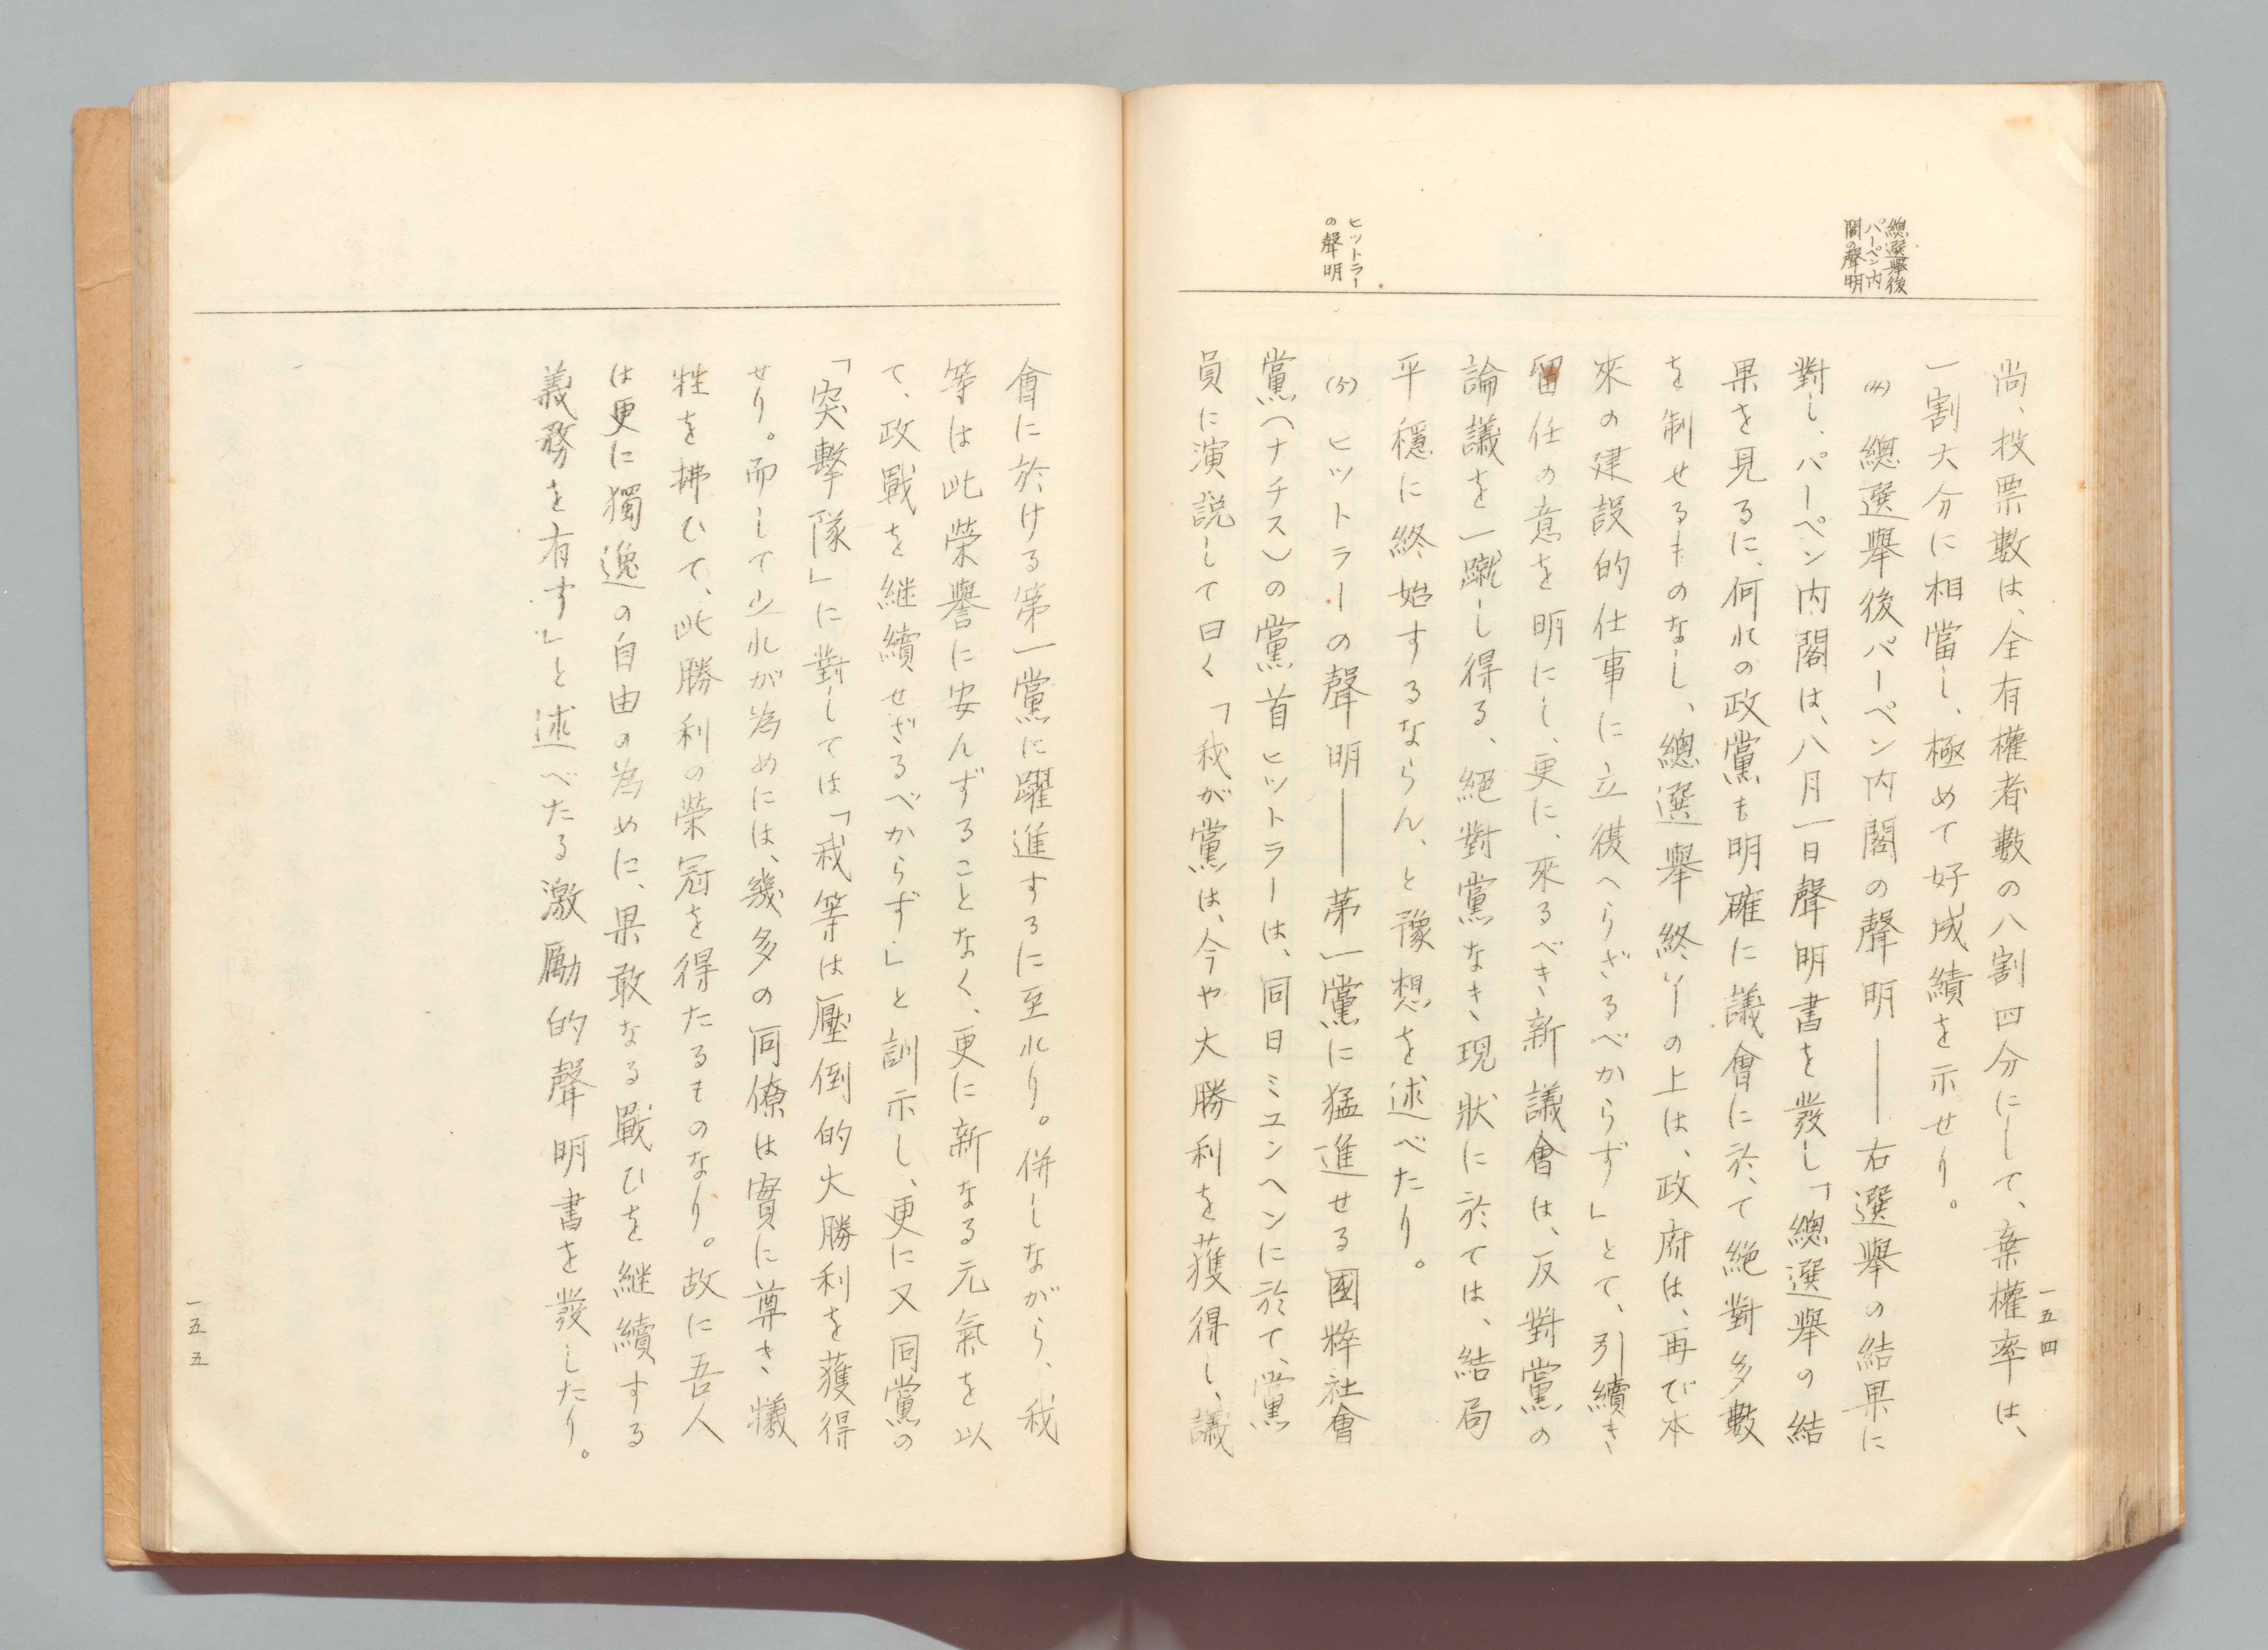 一五四
總選擧後
パーペン内
閣の聲明
ヒットラー
の聲明
尚、投票數は、全有權者數の八割四分にして、棄權率は、
一割大分に相當し、極めて好成績を示せり。
總選擧後パーペン内閣の聲明――右選擧の結果に
對し、パーペン内閣は、八月一日聲明書を發し「總選擧の結
果を見るに、何れの政黨も明確に議會に於て絶對多數
を制せるものなし、總選擧終了の上は、政府は、再び本
來の建設的仕事に立復へらざるべからず」とて、引續き
留任の意を明にし、更に、來るべき新議會は、反對黨の
論議を一蹴し得る、絕對黨なき現狀に於ては、結局
平穩に終始するならん、と豫想を述べたり。
(5) ヒットラーの聲明――第一黨に猛進せる國粹社會
黨(ナチス)の黨首ヒットラーは、同日ミュンヘンに於て、黨
員に演説して曰く「我が黨は、今や大勝利を獲得し、議
會に於ける第一黨に躍進するに至れり。併しながら、我
等は此榮譽に安んずることなく、更に新なる元氣を以
て、政戰を継續せざるべからず」と訓示し、更に又同黨の
「突擊隊」に對しては「我等は壓倒的大勝利を獲得
せり。而して之れが為めには、幾多の同僚は實に尊き犧
牲を拂ひて、此勝利の榮冠を得たるものなり。故に吾人
は更に獨逸の自由の為めに、果敢なる戰ひを継續する
義務を有す」と述べたる激勵的聲明書を發したり。
一五五